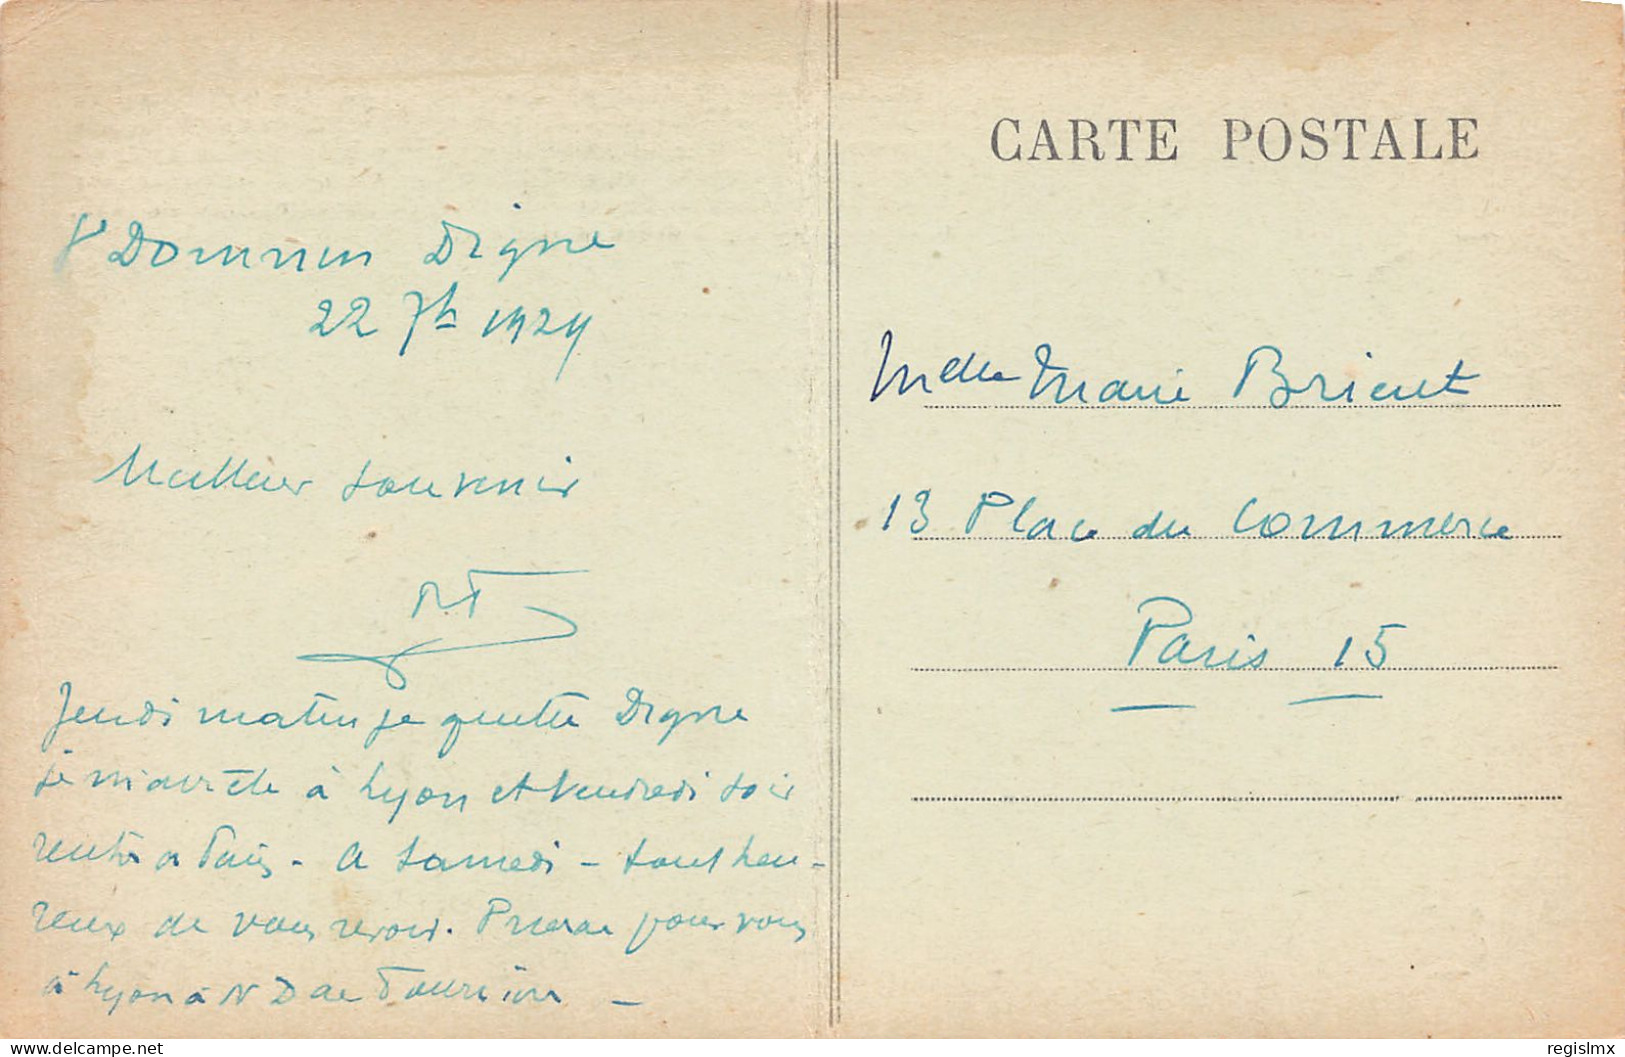 St Domnin Digne
22 7bre 1929
Meilleur souvenir
Jeudi matin je quitte Digne
je m'arrête à Lyon et Vendredi soir
rentre a Paris - A Samedi - tout heu-
reux de vous revoir. Prierai pour vous
à Lyon à N D de Fourvière -
CARTE POSTALE
Melle Marie Brient
13 Place du Commerce
Paris 15
delcampe.net
regislmx